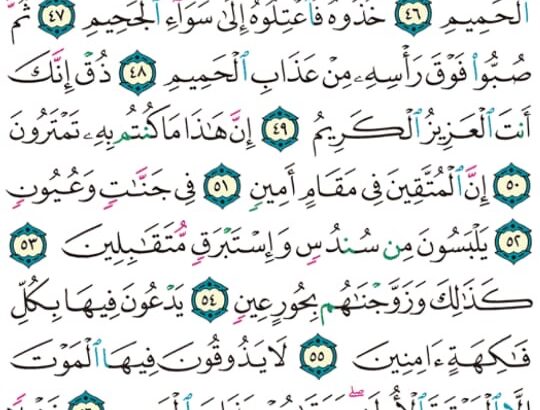 ٱلْحَمِيمِ ٤٦ خُذُوهُ فَٱعْتِلُوهُ إِلَىٰ سَوَآءِ ٱلْجَحِيمِ ٤٧ ثُمَّ
صُبُّوا۟ فَوْقَ رَأْسِهِۦ مِنْ عَذَابِ ٱلْحَمِيمِ ٤٨ ذُقْ إِنَّكَ
أَنتَ ٱلْعَزِيزُ ٱلْكَرِيمُ ٤٩ إِنَّ هَـٰذَا مَا كُنتُم بِهِۦ تَمْتَرُونَ
٥٠ إِنَّ ٱلْمُتَّقِينَ فِى مَقَامٍ أَمِينٍ ٥١ فِى جَنَّـٰتٍ وَعُيُونٍ
٥٢ يَلْبَسُونَ مِن سُندُسٍ وَإِسْتَبْرَقٍ مُّتَقَـٰبِلِينَ ٥٣
كَذَٰلِكَ وَزَوَّجْنَـٰهُم بِحُورٍ عِينٍ ٥٤ يَدْعُونَ فِيهَا بِكُلِّ
فَـٰكِهَةٍ ءَامِنِينَ ٥٥ لَا يَذُوقُونَ فِيهَا ٱلْمَوْتَ